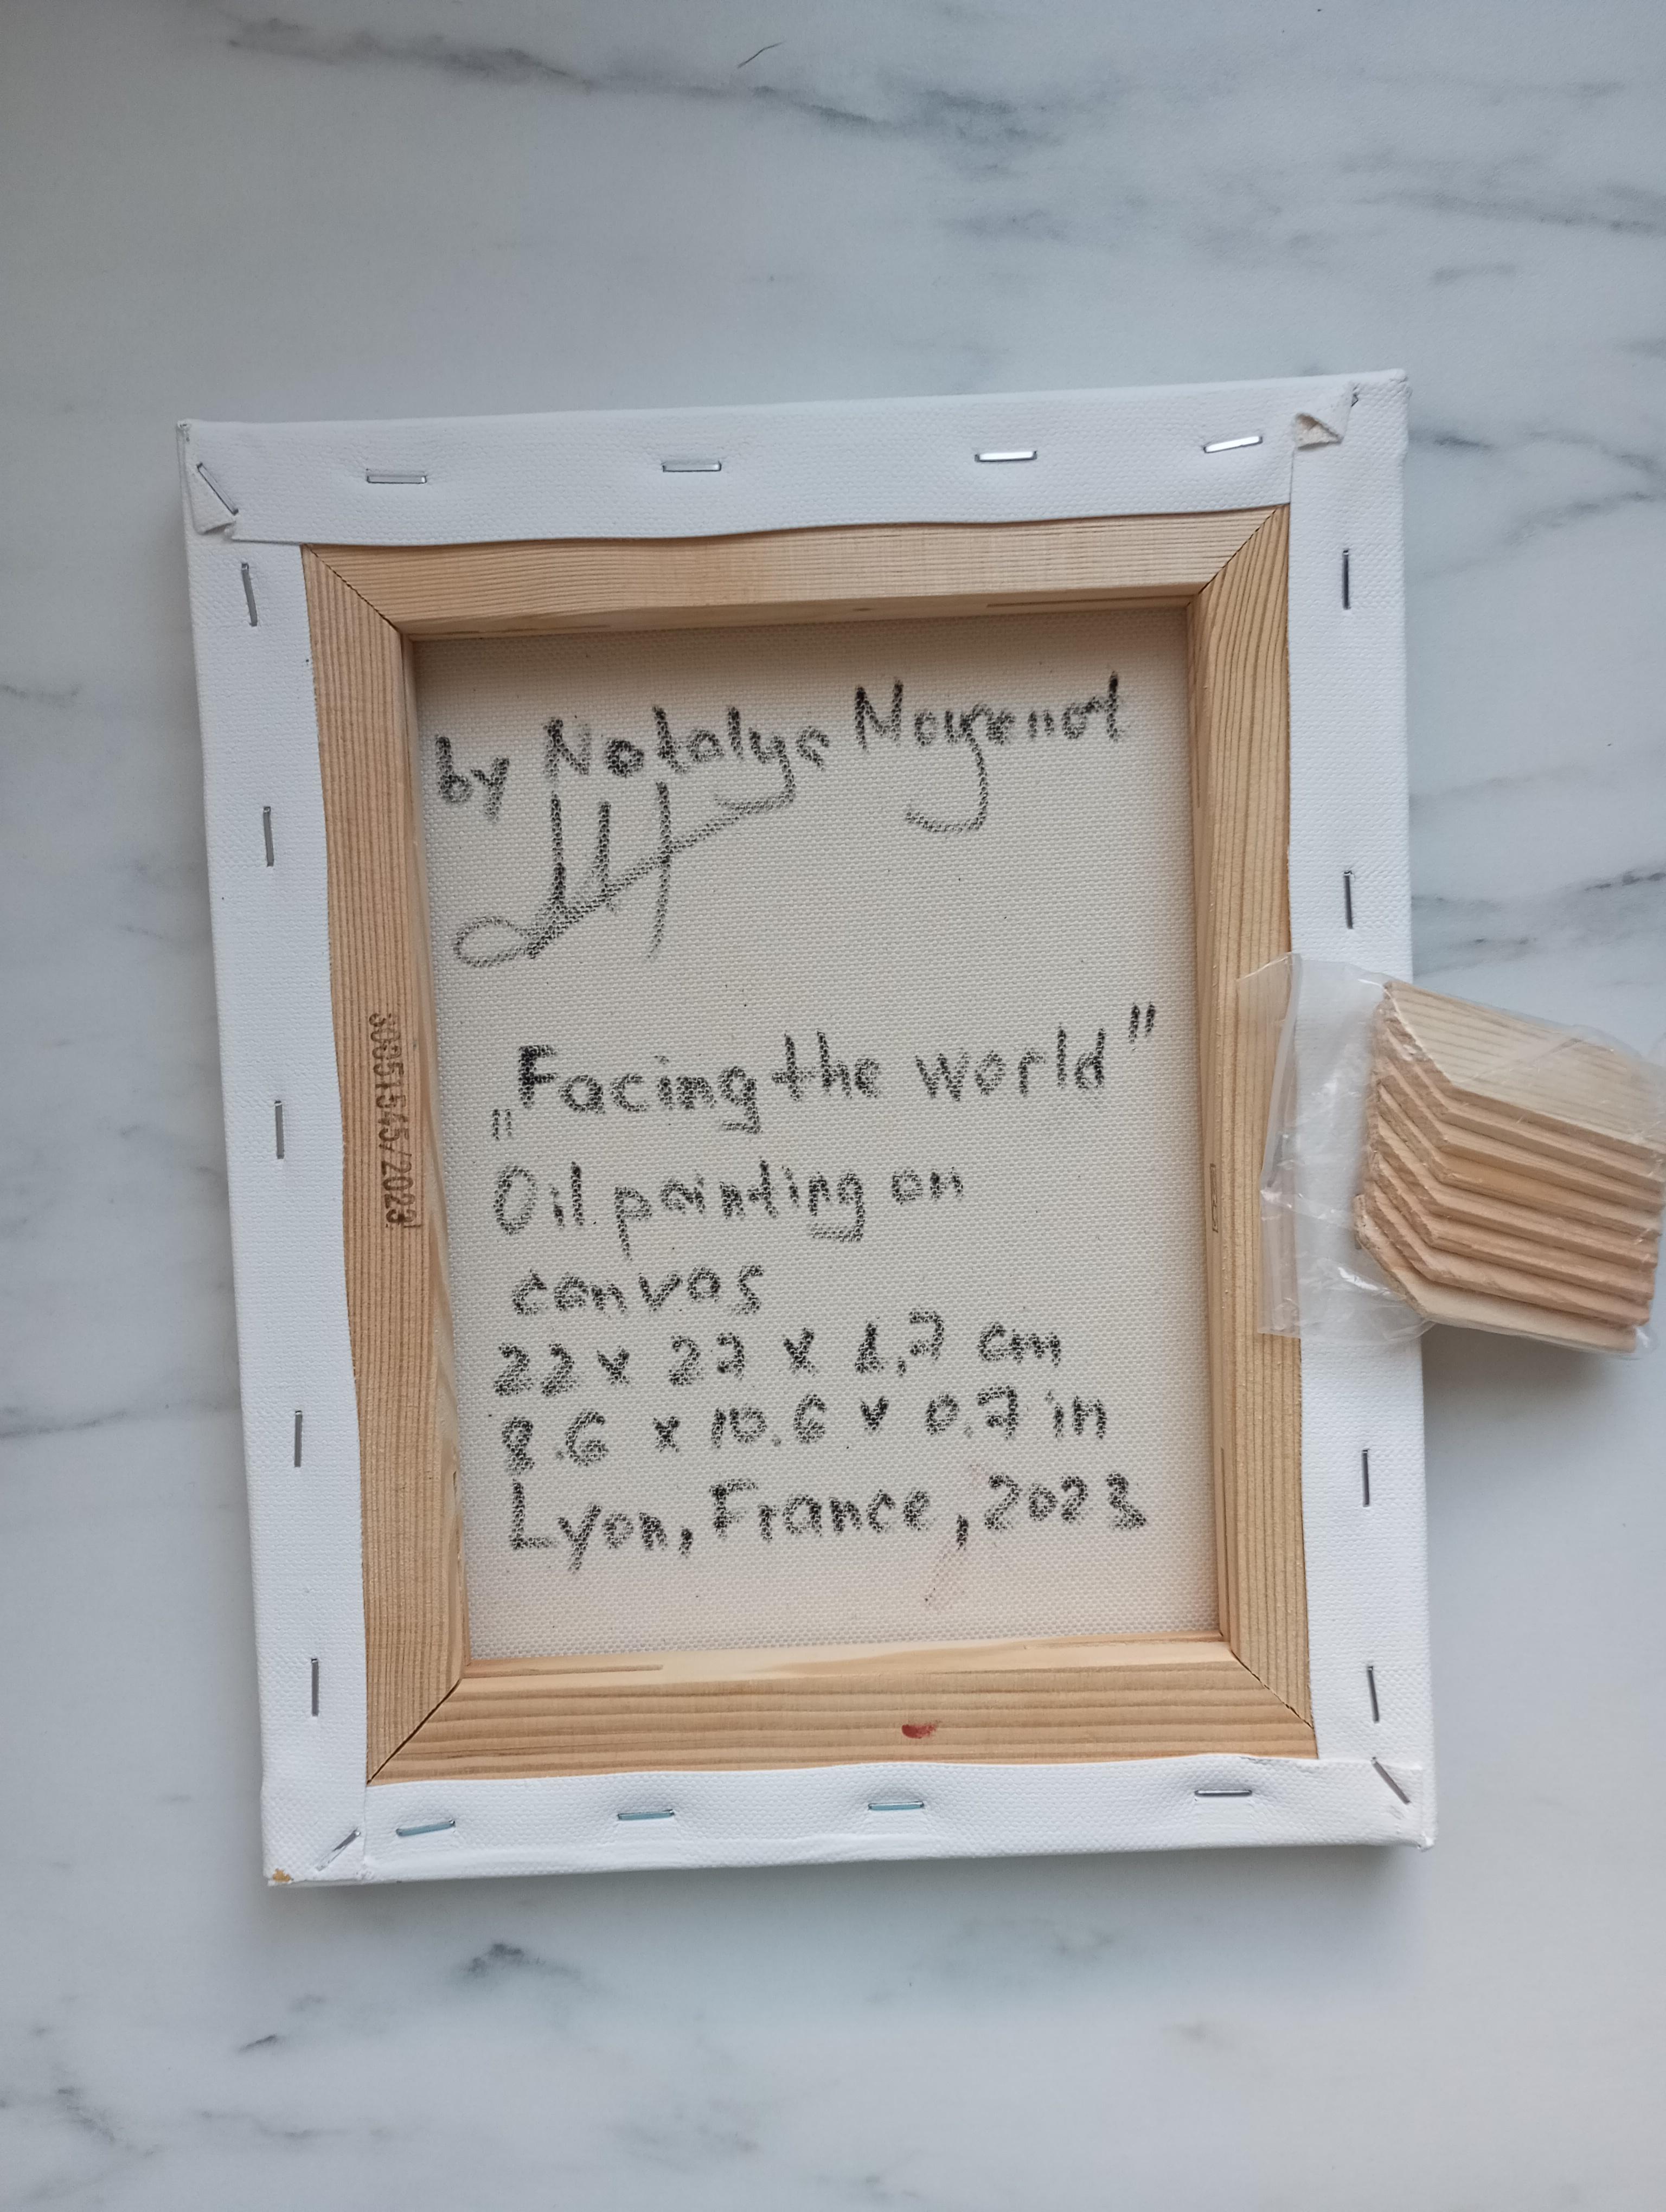 by Natalya Noyenot
„Facing the world"
Oil painting on
canvas
22 x 27 x 1,7 cm
8.6 x 10.6 x 0.7 in
Lyon, France, 2023